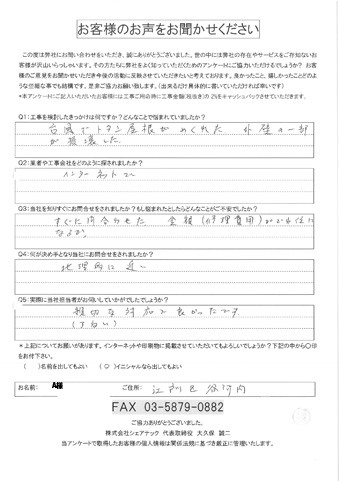 お客様のお声をお聞かせください
この度は弊社にお問い合わせをいただき、誠にありがとうございました。世の中には弊社の存在やサービスをご存知ないお
客様が沢山いらっしゃいます。その方たちに弊社をよく知っていただくためのアンケートにご協力いただけるでしょうか? お客
様のご意見をお聞かせいただき今後の活動に反映させていただきたいと考えております。良かったこと、嬉しかったことどのよ
うな些細な事でも結構です。是非ご協力お願い致します。(出来るだけ具体的に書いていただければ幸いです)
*本アンケートにご記入いただいたお客様には工事ご用命時に工事金額(税抜き)の2%をキャッシュバックさせていただきます。
Q1:工事を検討したきっかけは何ですか?どんなことで悩まれていましたか?
台風でトタン屋根がめくれた 外壁の一部
が破壊した.
Q2:業者や工事会社をどのように探されましたか?
インターネットで
Q3:当社を知りすぐにお問合せをされましたか?もし悩まれたとしたらどんなことがご不安でしたか?
すぐに問合わせた 金額(修理費用)がどれ位に
なるか.
Q4:何が決め手となり当社にお問合せをされましたか?
地理的に近い
Q5:実際に当社担当者がお伺いしていかがでしたでしょうか?
親切な対応で良かったです.
(丁寧い)
*上記についてお願いがあります。インターネットや印刷物に掲載させていただいてもよろしいでしょうか?下記の中から〇印
をお付下さい。
( )名前を出してもよい (○)イニシャルなら出してもよい
お名前: A様 ご住所: 江戸川区谷河内
FAX 03-5879-0882
ご協力ありがとうございました。
株式会社シェアテック 代表取締役 大久保 誠二
当アンケートで取得したお客様の個人情報は関係法規に基づき厳正に管理いたします。